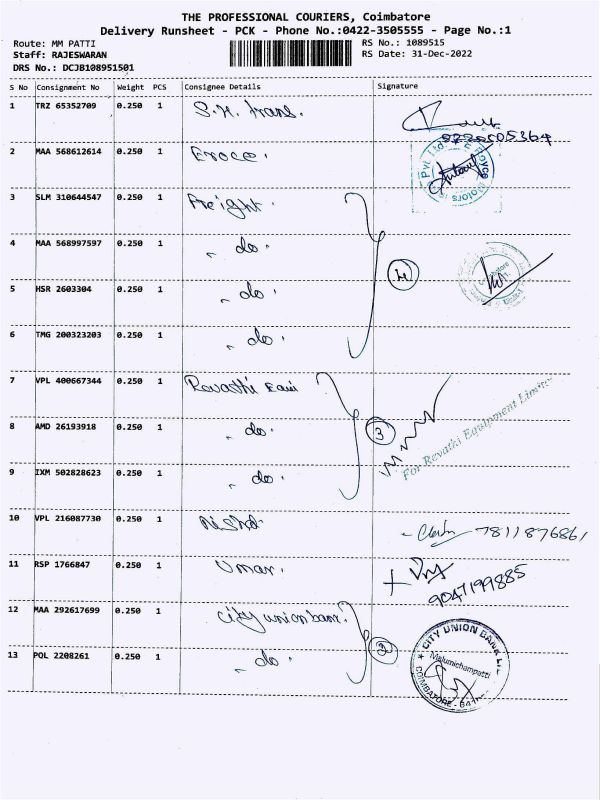 THE PROFESSIONAL COURIERS, Coimbatore
Delivery Runsheet - PCK - Phone No.:0422-3505555 - Page No.:1
Route: MM PATTI
RS No.: 1089515
Staff: RAJESWARAN
RS Date: 31-Dec-2022
DRS No.: DCJB108951501
S No Consignment No Weight PCS Consignee Details Signature
1 TRZ 65352709 0.250 1 S.H. trans.
2 MAA 568612614 0.250 1
Pvt Ltd
Motors
3 SLM 310644547 0.250 1 Freight.
4 MAA 568997597 0.250 1 " do. 4
5 HSR 2603304 0.250 1 " do.
6 TMG 200323203 0.250 1 " do.
7 VPL 400667344 0.250 1
8 AMD 26193918 0.250 1 " do. 3
For Revathi Equipment Limited
9 IXM 502828623 0.250 1 " do.
10 VPL 216087730 0.250 1 7811876861
11 RSP 1766847 0.250 1 Umar.
9047199885
12 MAA 292617699 0.250 1 City union bank.
13 PQL 2208261 0.250 1 " do. 2
CITY UNION BANK
Malumichampatti
COIMBATORE - 641